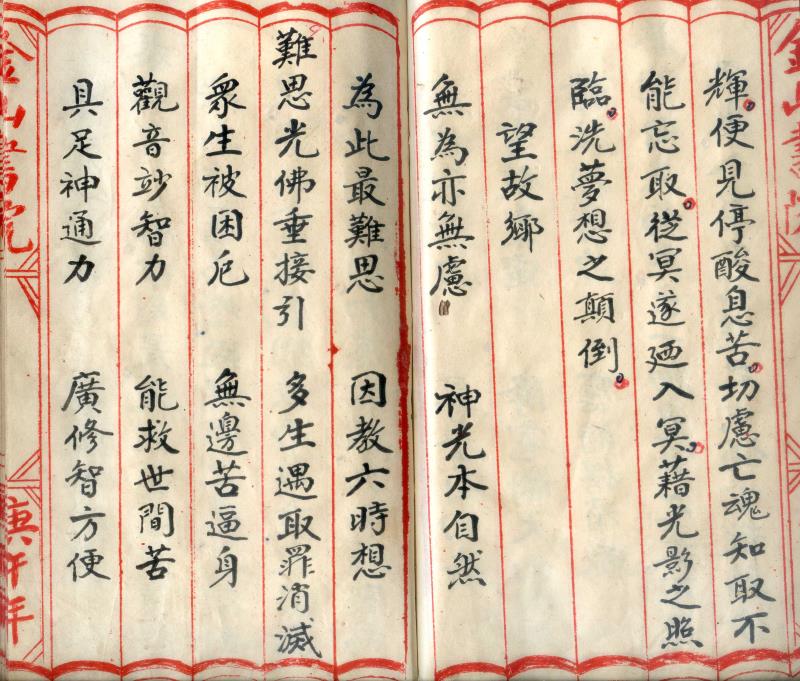 金山書院
輝便見停酸息苦切慮亡魂知取不
能忘取從冥遂廼入冥藉光影之照
臨洗夢想之顛倒
望故鄉
無為亦無慮 神光本自然
為此最難思 因教六時想
難思光佛垂接引 多生遇取罪消滅
眾生被困厄 無邊苦逼身
觀音竗智力 能救世間苦
具足神通力 廣修智方便
金山書院
庚午年